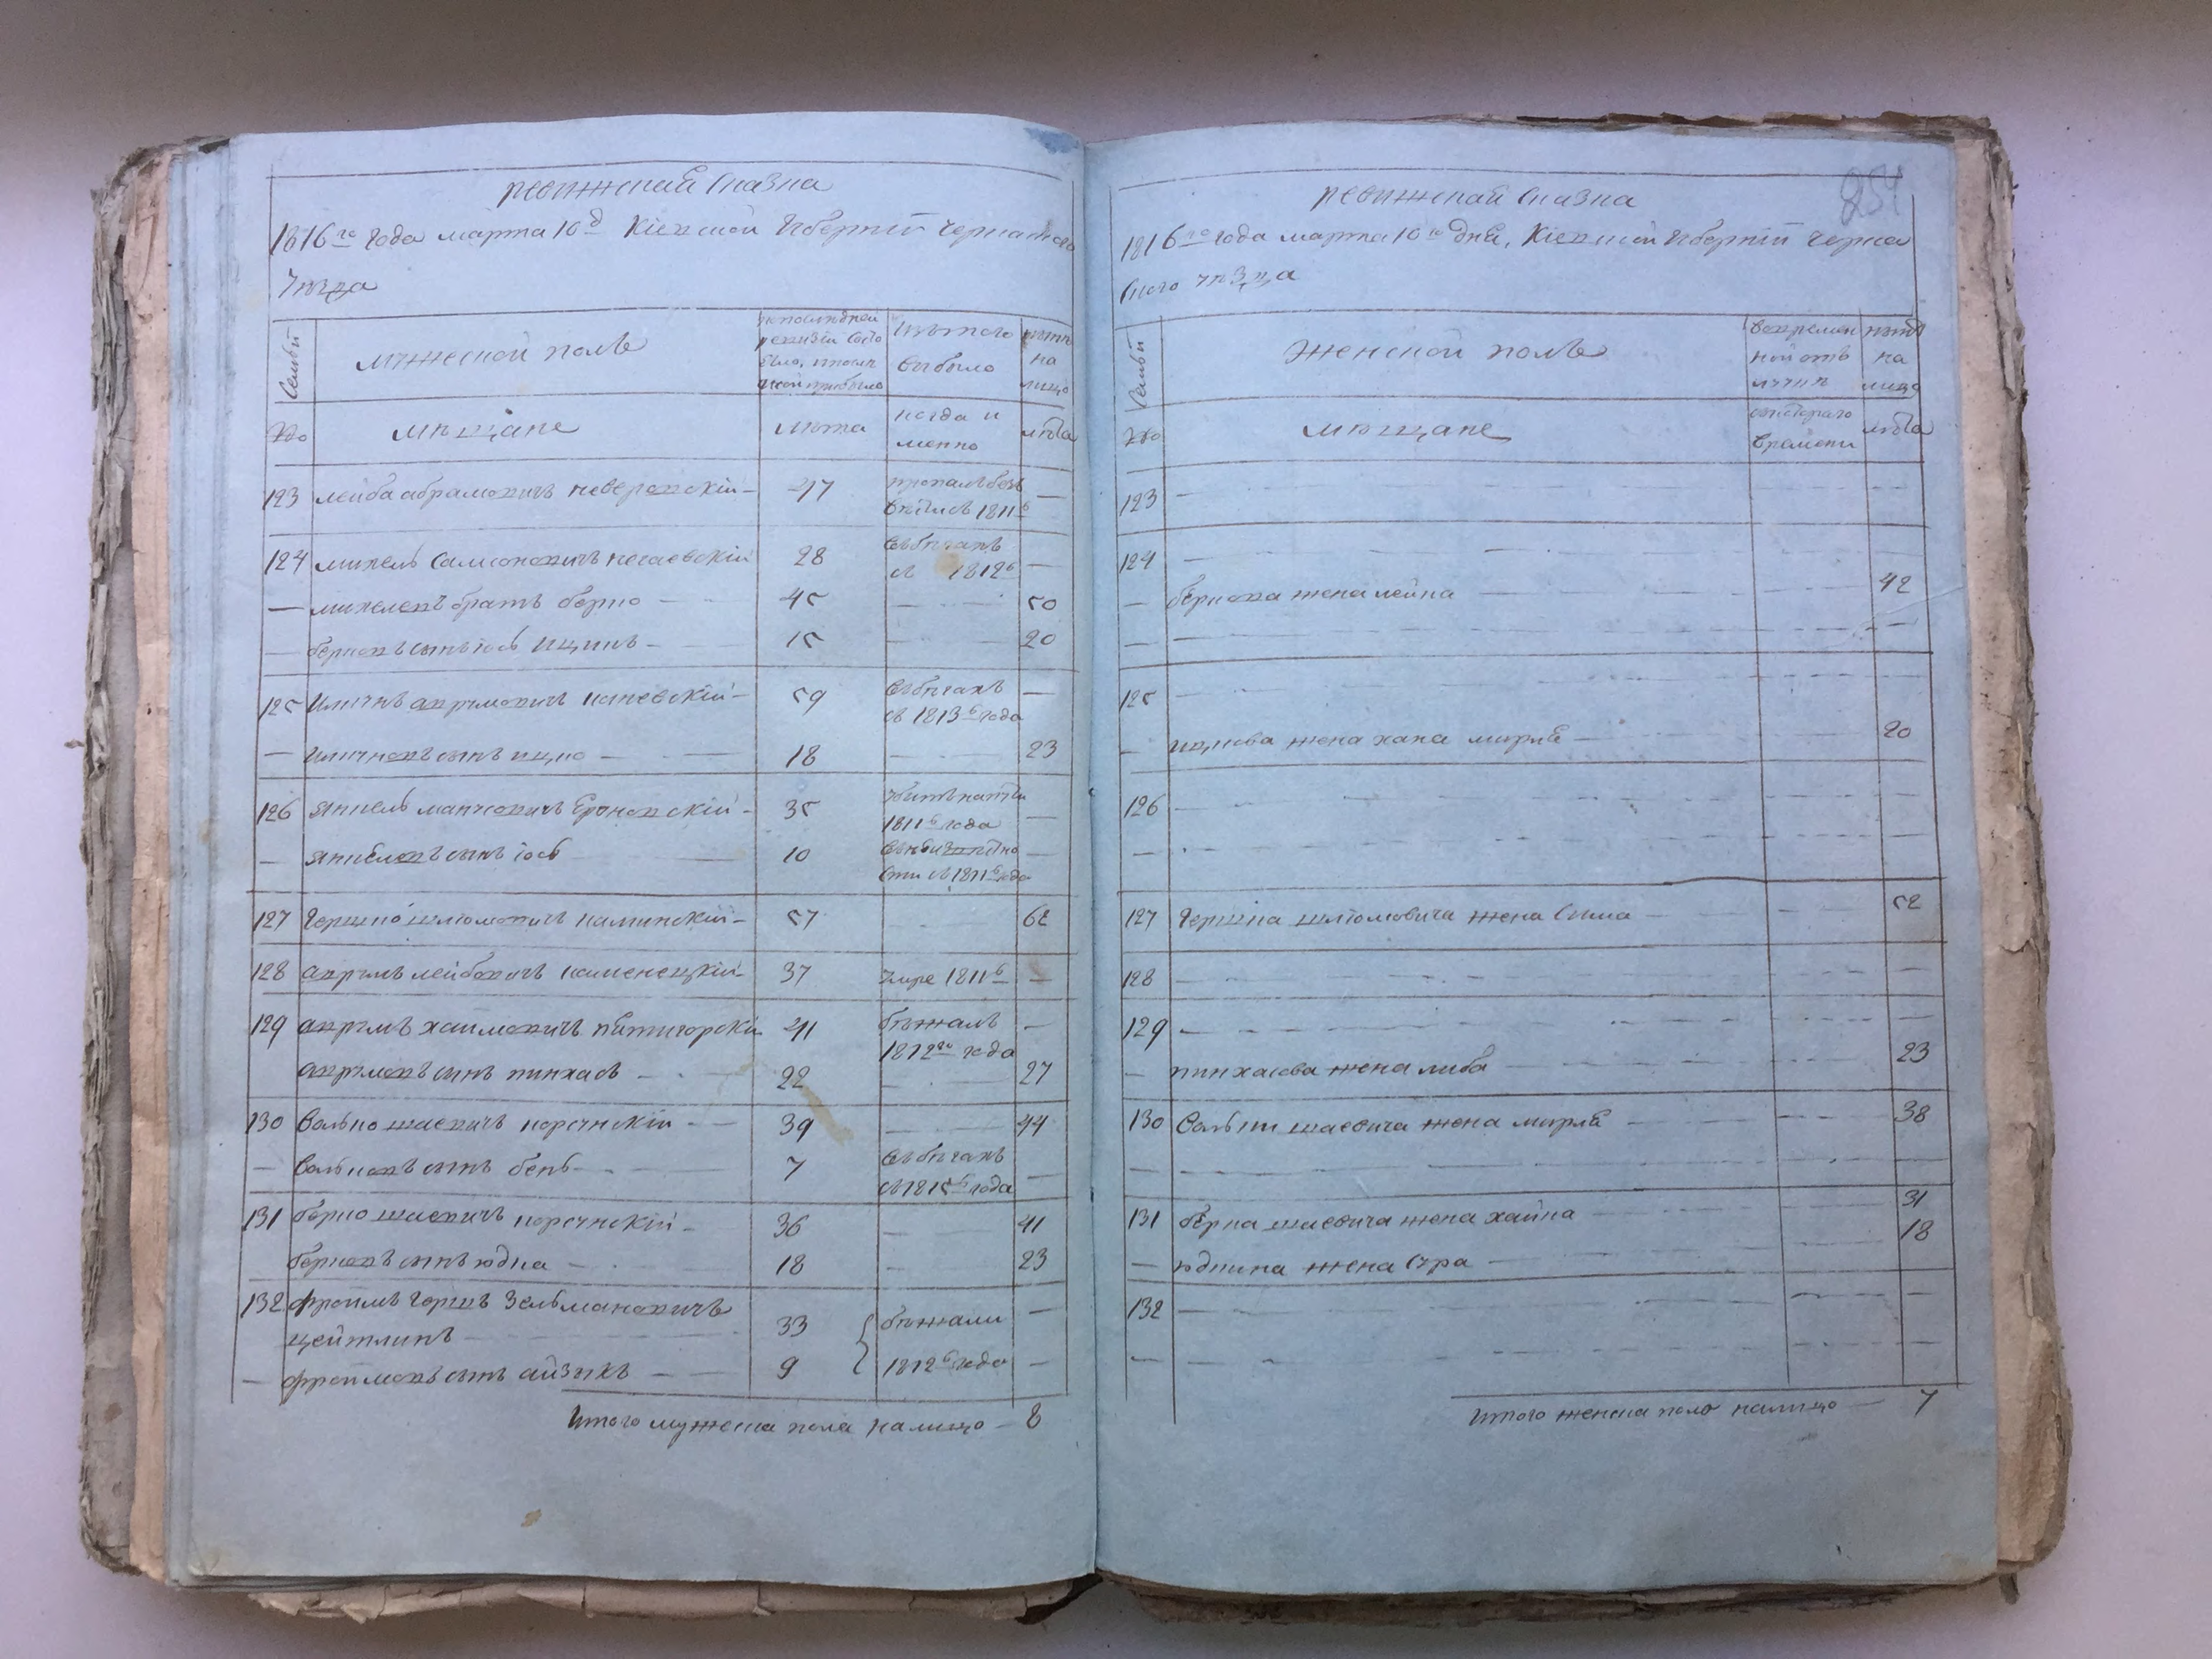 ревижская сказка
1816го года марта 10д Кіевской губерніи черкаского
уезда
Семьи
мужеской полъ
по последней
ревизіи состо
яло, и после
оной прибыло
изъ того
выбыло
ныне
на
лицо
№о
мещане
лета
когда и
менно
лета
123 лейба абрамовичъ неверовскій 47
пропалъ безъ
вести въ 1811г —
124 михель самсоновичъ 28
въ бегахъ
съ 1812г —
— михелевъ братъ берко — 45 — 50
— берковъ сынъ іось ицикъ — 15 — 20
125 аврумовичъ каневскій — 59
въ бегахъ
съ 1813г года —
— сынъ ицко — 18 — 23
126 янкель 35
1811г года —
— янкелевъ сынъ іось 10
съ 1811г года —
127 гершко шлюмовичъ каминскій — 57 62
128 аврумъ лейбовичъ каменецкій — 37 умре 1811г —
129 аврумъ хаимовичъ пятигорскій 41
бежалъ
1812го года —
аврумовъ сынъ пинхасъ — 22 — 27
130 волько шаевичъ корсунскій — 39 — 44
— вольковъ сынъ бенъ — 7
въ бегахъ
съ 1815г года —
131 берко шаевичъ корсунскій — 36 — 41
берковъ сынъ юдка — 18 — 23
132 фроимъ гершъ зельмановичъ
цейтлинъ — 33
бежали —
— фроимовъ сынъ айзыкъ — 9
1812г года —
Итого мужеска пола налицо — 8
254
ревижская сказка
1816го года марта 10го дня, Кіевской губерніи черка
ского уезда
Семьи
Женской полъ
во времен
ной от
лучке
ныне
на
лицо
№о
мещане
с котораго
времени
лета
123 —
124 —
— беркова жена лейка — 42
—
125 —
— ицкова жена хана мирля — 20
126 —
—
127 гершка шлюмовича жена сима — 52
128 —
129 —
— пинхасова жена либа — 23
130 вольки шаевича жена мирля — 38
—
131 берка шаевича жена хайка — 31
— юдкина жена сура — 18
132 —
—
Итого женска пола налицо — 7